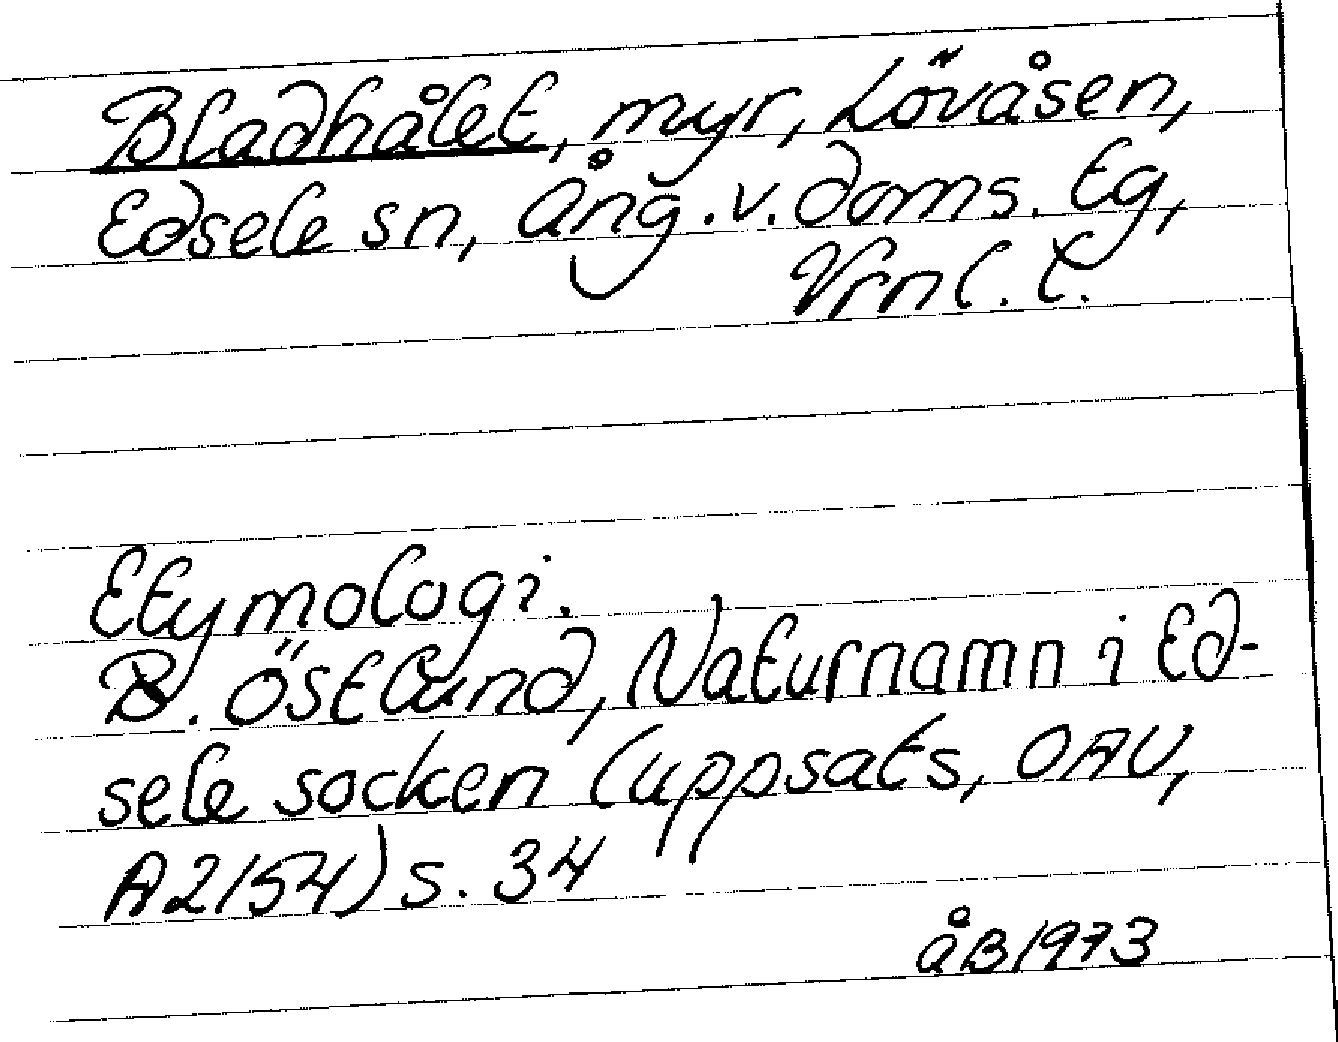 Bladhålet, myr, Lövåsen,
Edsele sn, Ång. v. doms. tg,
Vrnl. l.
Etymologi.
B. Östlund, Naturnamn i Ed-
sele socken (uppsats, OAU,
A2154) s. 34
ÅB 1973